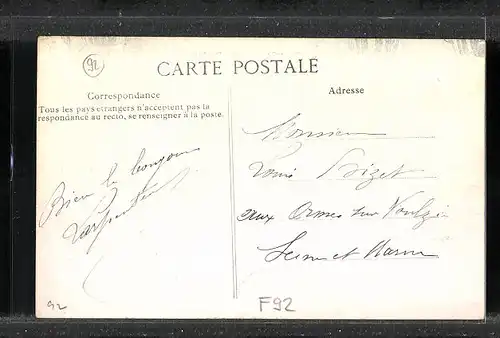 92
CARTE POSTALE
Correspondance
Tous les pays étrangers n'acceptent pas la
respondance au recto, se renseigner à la poste.
Adresse
Bien le bonjour
Monsieur
Louis Bizet
aux Ormes sur Voulzie
Seine et Marne
92
F92